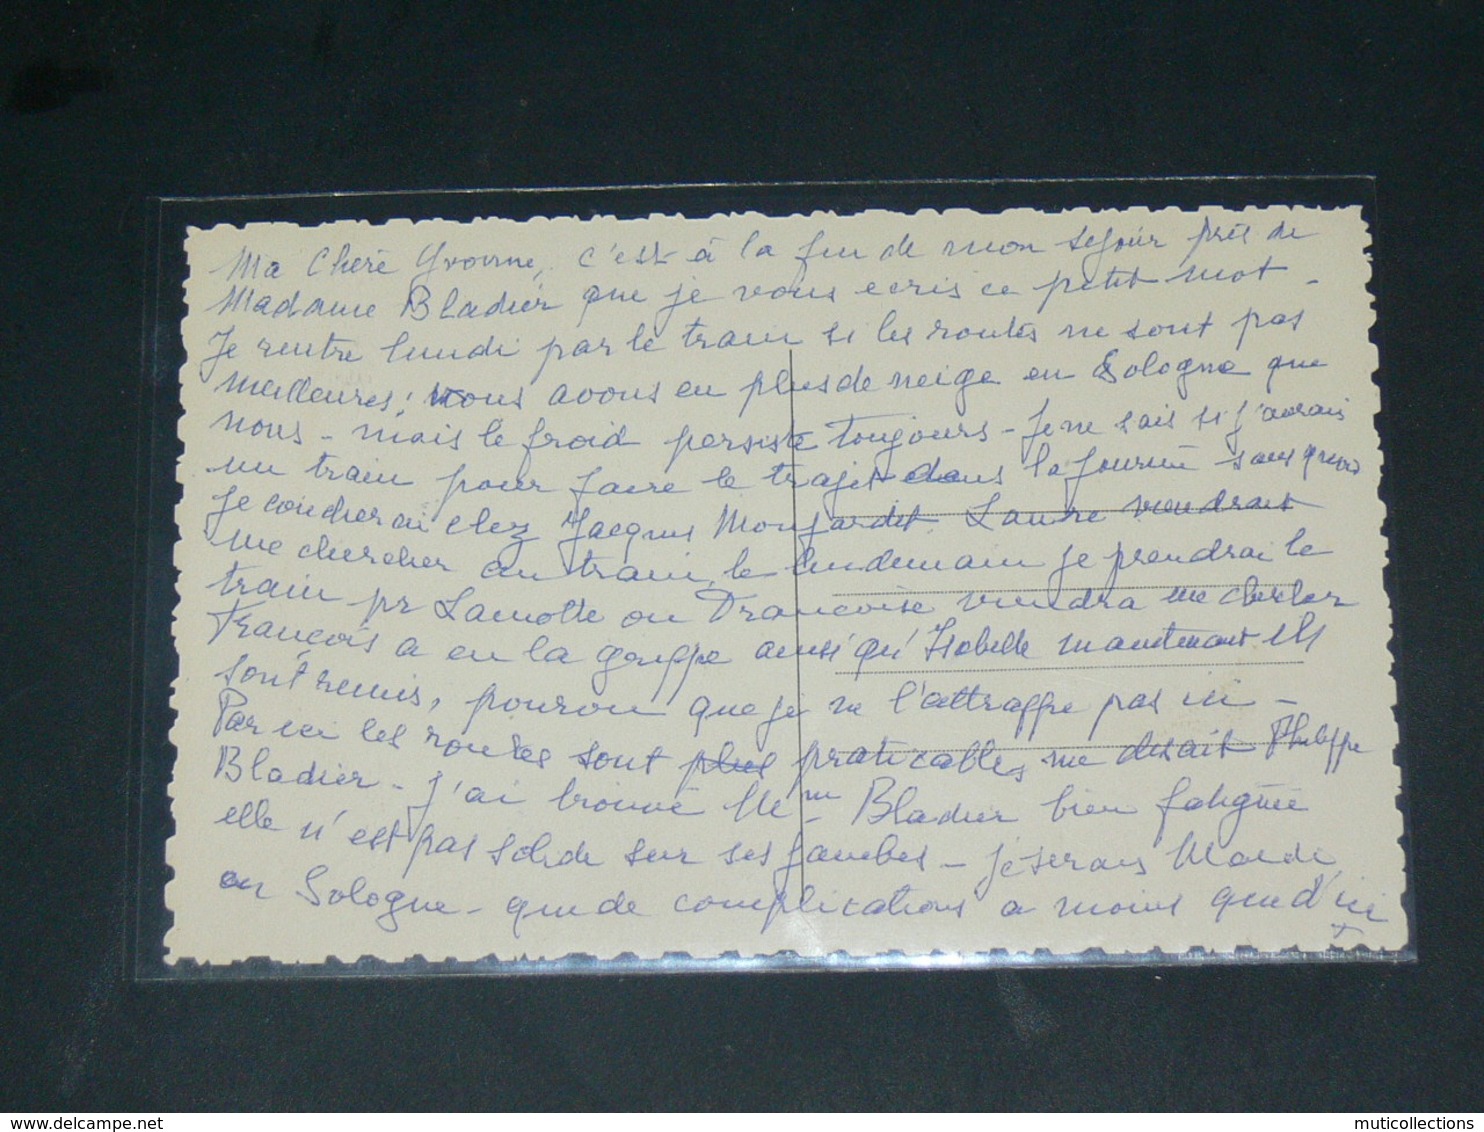 Ma Chère Yvonne, c'est à la fin de mon séjour près de
Madame Bladier que je vous ecris ce petit mot -
Je rentre lundi par le train si les routes ne sont pas
meilleures, vous avons eu plus de neige en Sologne que
nous - mais le froid persiste toujours - Je ne sais si j'aurais
un train pour faire le trajet dans la journée sans quoi
je coucherai chez Jacques Monjardet Laure viendrait
me chercher au train, le lendemain je prendrai le
train pr Lamotte ou Françoise viendra me chercher
François a eu la grippe ainsi qu' Isabelle maintenant ils
sont remis, pourvu que je ne l'attrappe pas ici -
Par ici les routes sont plus praticables, me disait Philippe
Bladier - J'ai trouvé Mme Bladier bien fatiguée
elle n'est pas solide sur ses jambes - je serais Mardi
en Sologne - que de complications a moins que d'ici
+
www.delcampe.net
muticollections